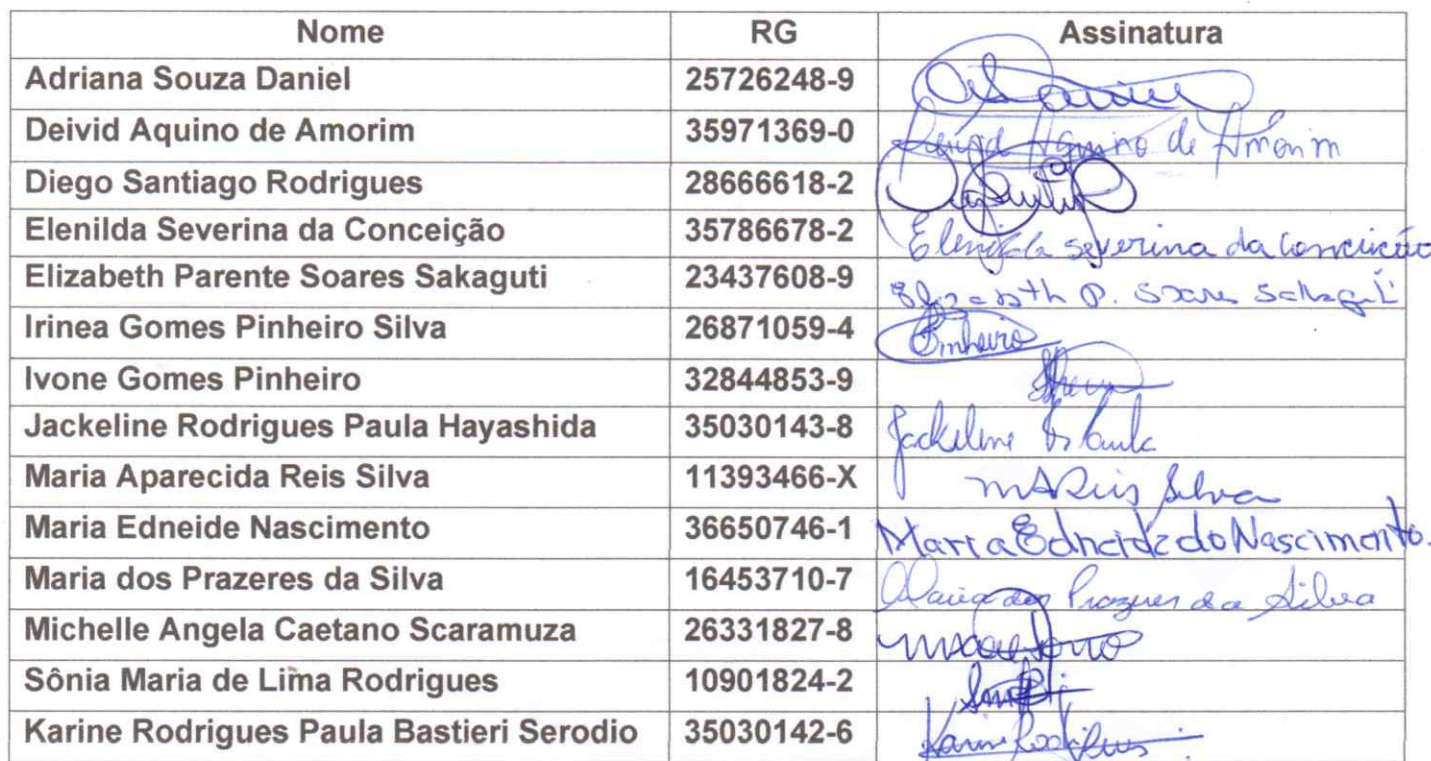 Nome RG Assinatura
Adriana Souza Daniel 25726248-9
Deivid Aquino de Amorim 35971369-0 Deivid Aquino de Amorim
Diego Santiago Rodrigues 28666618-2
Elenilda Severina da Conceição 35786678-2 Elenilda severina da conceicão
Elizabeth Parente Soares Sakaguti 23437608-9 Elizabeth P. Soares Sakaguti
Irinea Gomes Pinheiro Silva 26871059-4 Pinheiro
Ivone Gomes Pinheiro 32844853-9
Jackeline Rodrigues Paula Hayashida 35030143-8 Jackeline Paula
Maria Aparecida Reis Silva 11393466-X MAReis Silva
Maria Edneide Nascimento 36650746-1 Maria Edneide do Nascimento.
Maria dos Prazeres da Silva 16453710-7 Maria dos Prazeres da Silva
Michelle Angela Caetano Scaramuza 26331827-8
Sônia Maria de Lima Rodrigues 10901824-2
Karine Rodrigues Paula Bastieri Serodio 35030142-6 Karine Rodrigues